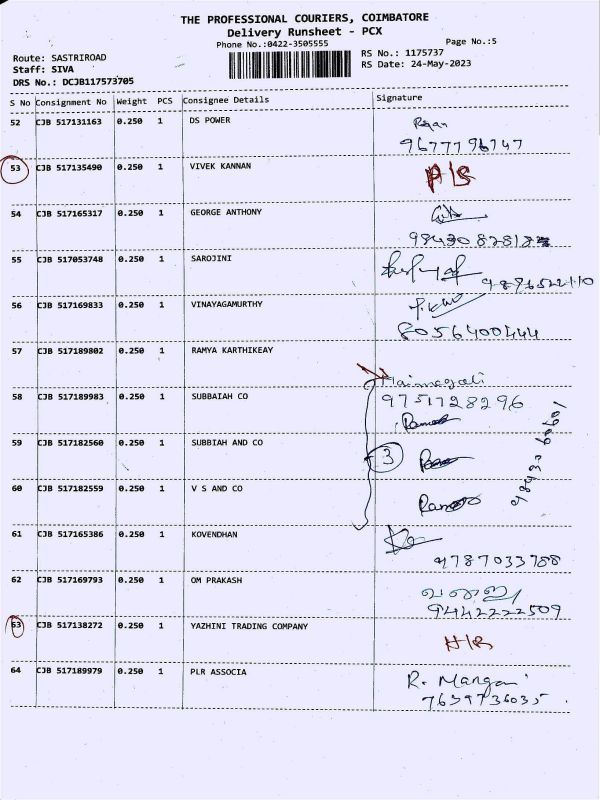 THE PROFESSIONAL COURIERS, COIMBATORE
Delivery Runsheet - PCX
Phone No.:0422-3505555
Page No.:5
Route: SASTRIROAD
RS No.: 1175737
Staff: SIVA
RS Date: 24-May-2023
DRS No.: DCJB117573705
S No Consignment No Weight PCS Consignee Details Signature
52 CJB 517131163 0.250 1 DS POWER
9677796747
53 CJB 517135490 0.250 1 VIVEK KANNAN
54 CJB 517165317 0.250 1 GEORGE ANTHONY
55 CJB 517053748 0.250 1 SAROJINI
9896522110
56 CJB 517169833 0.250 1 VINAYAGAMURTHY
8056400444
57 CJB 517189802 0.250 1 RAMYA KARTHIKEAY
58 CJB 517189983 0.250 1 SUBBAIAH CO
9751728296
59 CJB 517182560 0.250 1 SUBBIAH AND CO
3
60 CJB 517182559 0.250 1 V S AND CO
61 CJB 517165386 0.250 1 KOVENDHAN
9787033788
62 CJB 517169793 0.250 1 OM PRAKASH
9442222509
63 CJB 517138272 0.250 1 YAZHINI TRADING COMPANY
64 CJB 517189979 0.250 1 PLR ASSOCIA
R. Mangai
7639736035